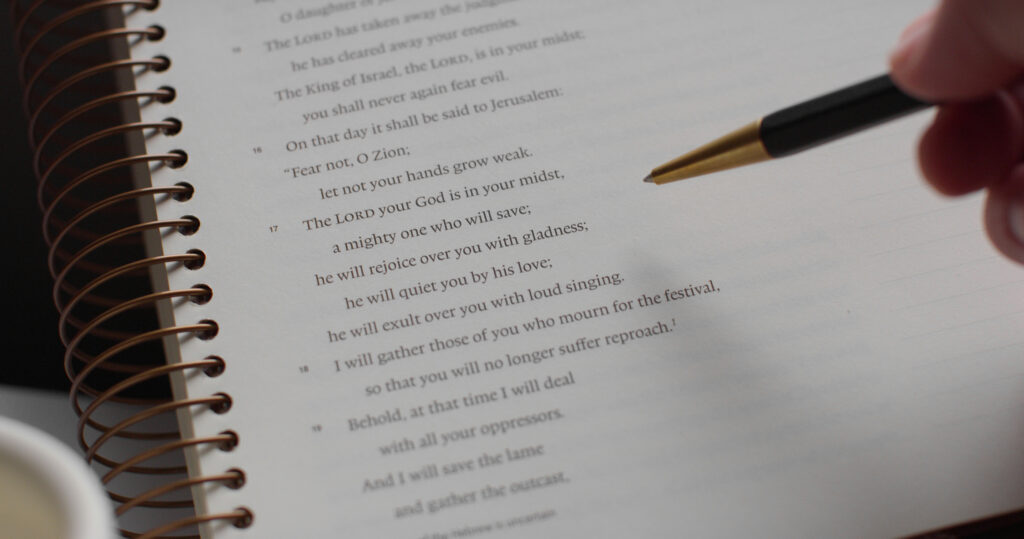 O daughter of
15 The LORD has taken away the judgments
he has cleared away your enemies.
The King of Israel, the LORD, is in your midst;
you shall never again fear evil.
16 On that day it shall be said to Jerusalem:
“Fear not, O Zion;
let not your hands grow weak.
17 The LORD your God is in your midst,
a mighty one who will save;
he will rejoice over you with gladness;
he will quiet you by his love;
he will exult over you with loud singing.
18 I will gather those of you who mourn for the festival,
so that you will no longer suffer reproach.1
19 Behold, at that time I will deal
with all your oppressors.
And I will save the lame
and gather the outcast,
Hebrew is uncertain